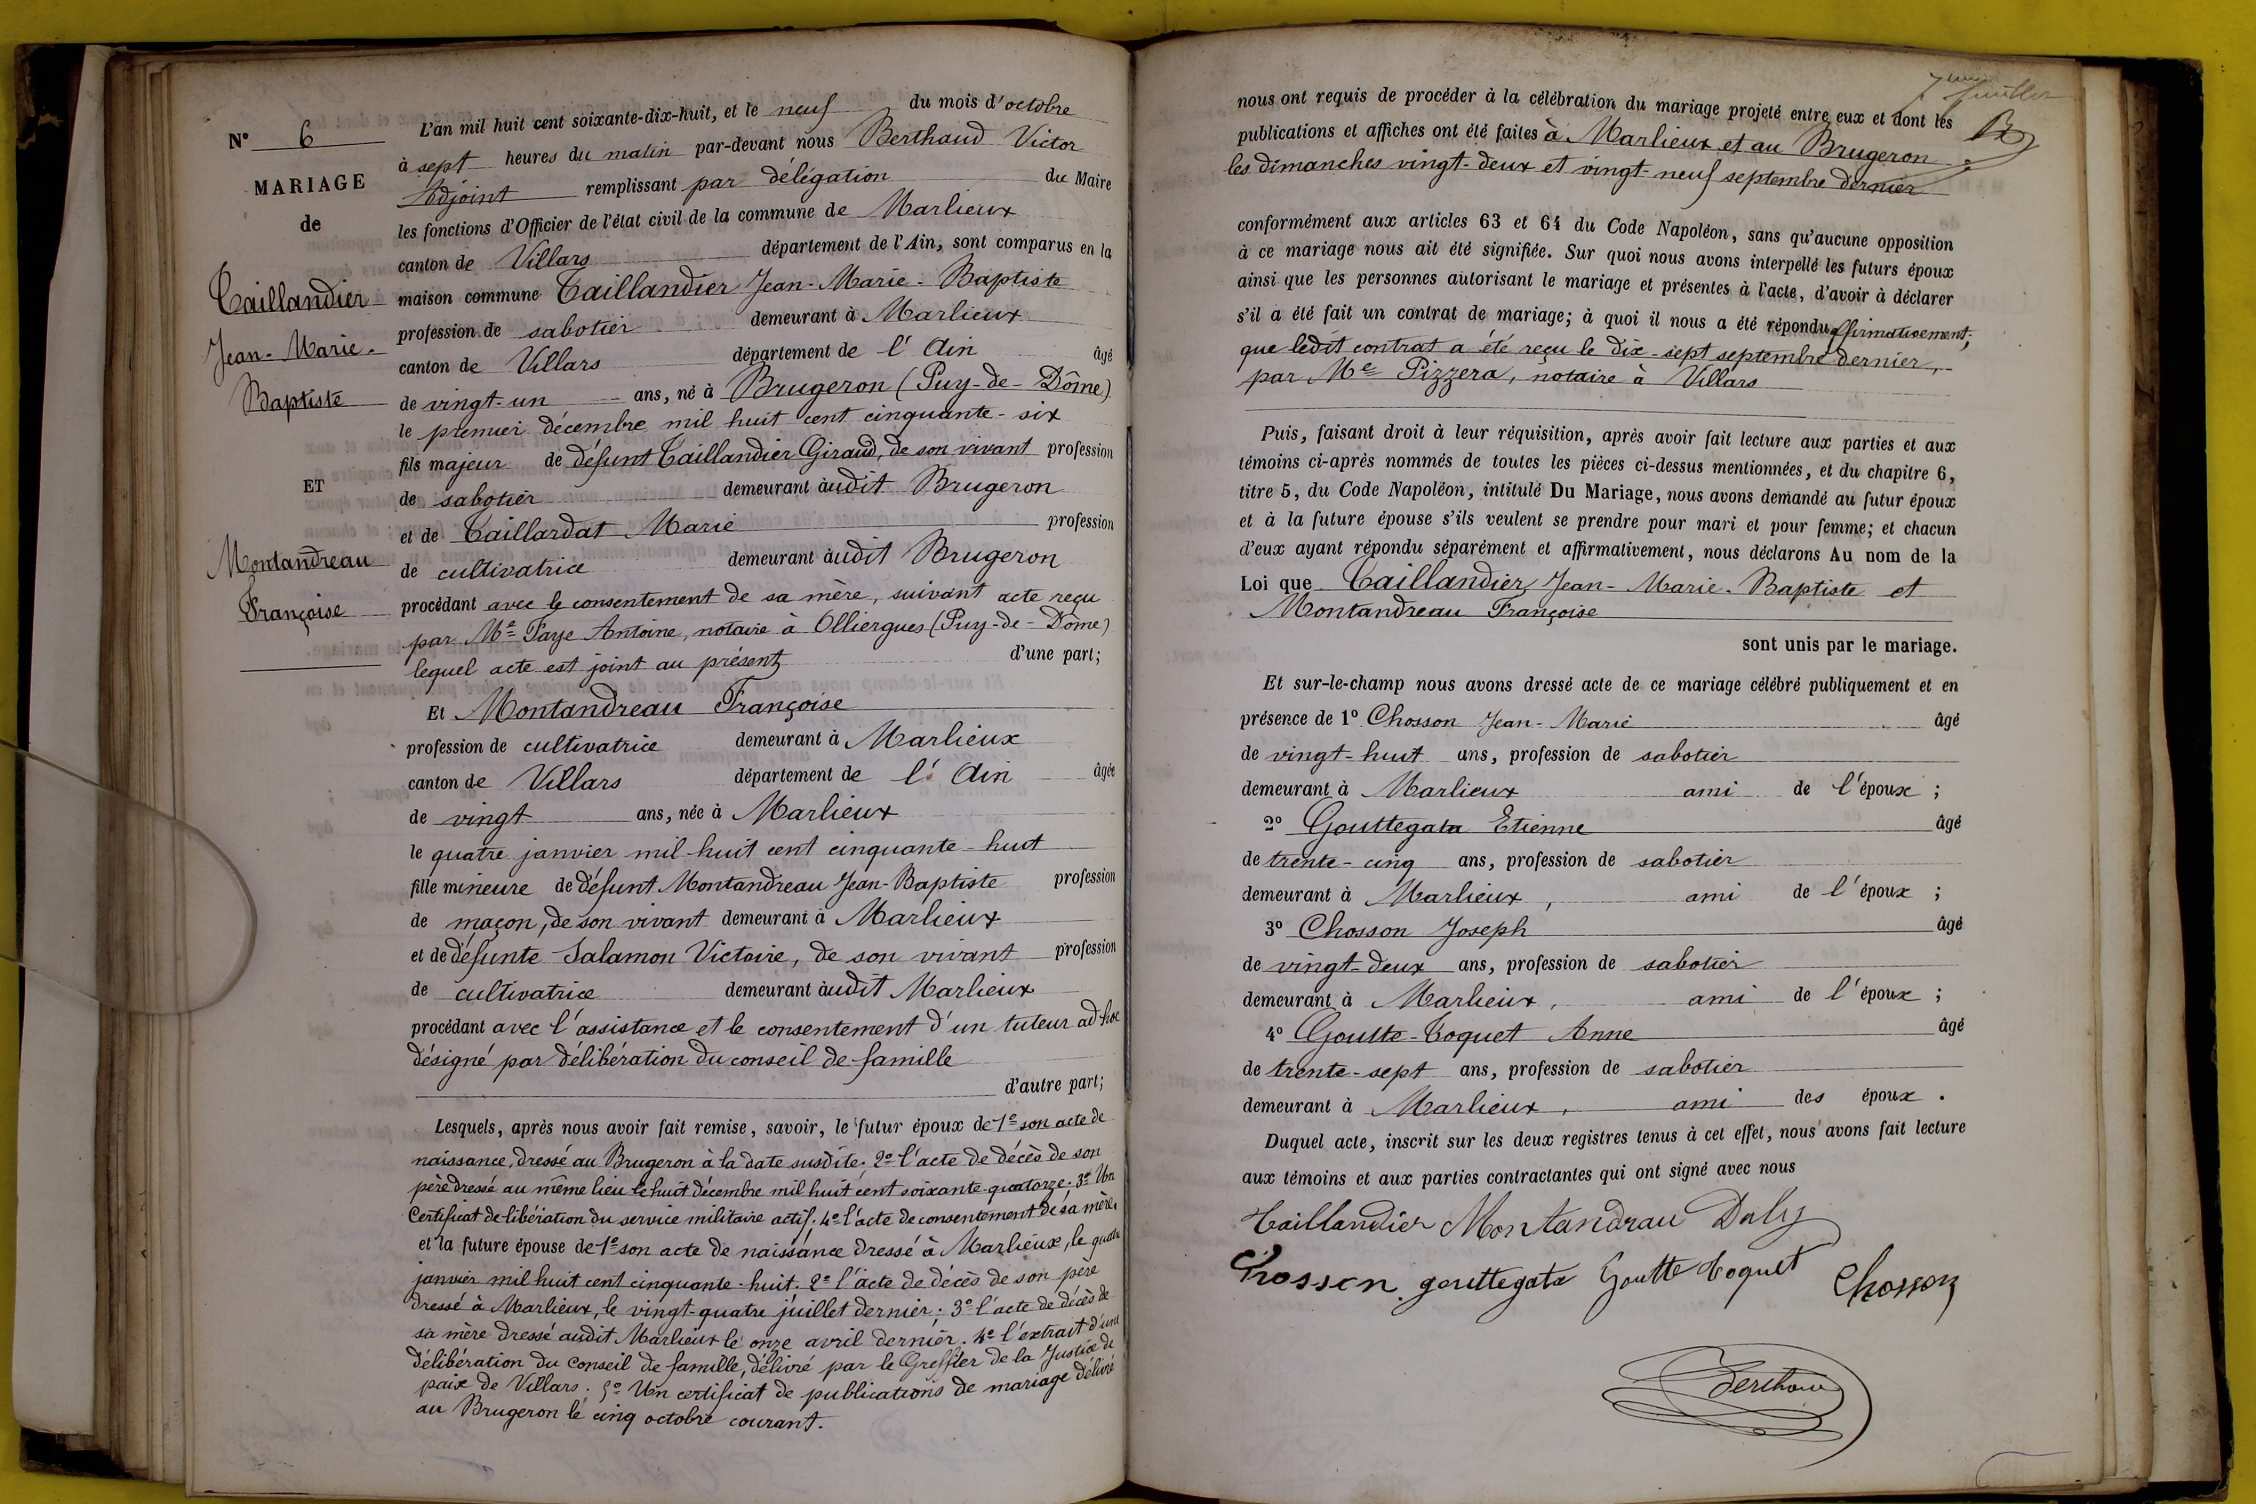 N° 6
MARIAGE
de
Taillandier
Jean-Marie-
Baptiste
ET
Montandreau
Françoise
L'an mil huit cent soixante-dix-huit, et le neuf du mois d'octobre
à sept heures du matin par-devant nous Berthaud Victor
Adjoint remplissant par délégation du Maire
les fonctions d'Officier de l'état civil de la commune de Marlieux
canton de Villars département de l'Ain, sont comparus en la
maison commune Taillandier Jean-Marie-Baptiste
profession de sabotier demeurant à Marlieux
canton de Villars département de l'Ain âgé
de vingt-un ans, né à Brugeron (Puy-de-Dôme)
le premier décembre mil huit cent cinquante-six
fils majeur de défunt Taillandier Giraud, de son vivant profession
de sabotier demeurant audit Brugeron
et de Taillardat Marie profession
de cultivatrice demeurant audit Brugeron
procédant avec le consentement de sa mère, suivant acte reçu
par Me Faye Antoine, notaire à Olliergues (Puy-de-Dôme)
lequel acte est joint au présent d'une part;
Et Montandreau Françoise
profession de cultivatrice demeurant à Marlieux
canton de Villars département de l'Ain âgée
de vingt ans, née à Marlieux
le quatre janvier mil huit cent cinquante-huit
fille mineure de défunt Montandreau Jean-Baptiste profession
de maçon, de son vivant demeurant à Marlieux
et de défunte Salamon Victoire, de son vivant profession
de cultivatrice demeurant audit Marlieux
procédant avec l'assistance et le consentement d'un tuteur ad hoc
désigné par délibération du conseil de famille
d'autre part;
Lesquels, après nous avoir fait remise, savoir, le futur époux de 1° son acte de
naissance, dressé au Brugeron à la date susdite; 2° l'acte de décès de son
père dressé au même lieu le huit décembre mil huit cent soixante-quatorze. 3° Un
Certificat de libération du service militaire actif. 4° l'acte de consentement de sa mère.
et la future épouse de 1° son acte de naissance dressé à Marlieux, le quatre
janvier mil huit cent cinquante-huit. 2° l'acte de décès de son père
dressé à Marlieux, le vingt-quatre juillet dernier; 3° l'acte de décès de
sa mère dressé audit Marlieux le onze avril dernier. 4° l'extrait d'une
délibération du Conseil de famille, délivré par le Greffier de la Justice de
paix de Villars. 5° Un certificat de publications de mariage délivré
au Brugeron le cinq octobre courant.
nous ont requis de procéder à la célébration du mariage projeté entre eux et dont les
publications et affiches ont été faites à Marlieux et au Brugeron
les dimanches vingt-deux et vingt-neuf septembre dernier
conformément aux articles 63 et 64 du Code Napoléon, sans qu'aucune opposition
à ce mariage nous ait été signifiée. Sur quoi nous avons interpellé les futurs époux
ainsi que les personnes autorisant le mariage et présentes à l'acte, d'avoir à déclarer
s'il a été fait un contrat de mariage; à quoi il nous a été répondu affirmativement;
que ledit contrat a été reçu le dix-sept septembre dernier,
par Me Pizzera, notaire à Villars
Puis, faisant droit à leur réquisition, après avoir fait lecture aux parties et aux
témoins ci-après nommés de toutes les pièces ci-dessus mentionnées, et du chapitre 6,
titre 5, du Code Napoléon, intitulé Du Mariage, nous avons demandé au futur époux
et à la future épouse s'ils veulent se prendre pour mari et pour femme; et chacun
d'eux ayant répondu séparément et affirmativement, nous déclarons Au nom de la
Loi que Taillandier Jean-Marie-Baptiste et
Montandreau Françoise
sont unis par le mariage.
Et sur-le-champ nous avons dressé acte de ce mariage célébré publiquement et en
présence de 1° Chosson Jean-Marie âgé
de vingt-huit ans, profession de sabotier
demeurant à Marlieux ami de l'époux;
2° Gouttegata Etienne âgé
de trente-cinq ans, profession de sabotier
demeurant à Marlieux, ami de l'époux;
3° Chosson Joseph âgé
de vingt-deux ans, profession de sabotier
demeurant à Marlieux, ami de l'époux;
4° Goutte-Toquet Anne âgé
de trente-sept ans, profession de sabotier
demeurant à Marlieux, ami des époux.
Duquel acte, inscrit sur les deux registres tenus à cet effet, nous avons fait lecture
aux témoins et aux parties contractantes qui ont signé avec nous
Taillandier Montandrau Daly
Chosson gouttegata Goutte Toquet Chosson
Berthaud